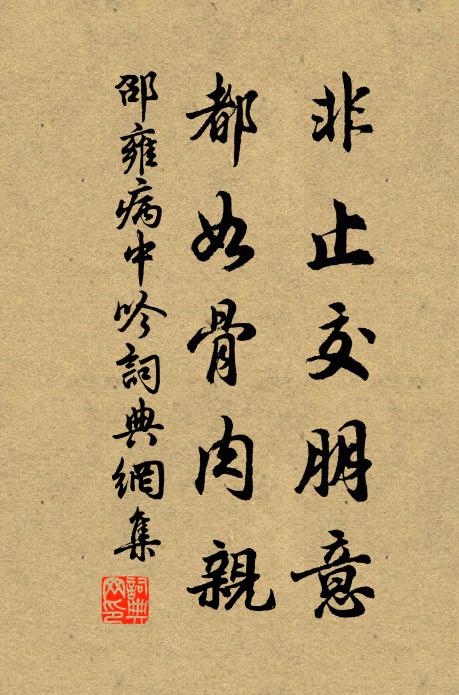 非止交朋意
都如骨肉親
邵雍病中吟詞典網集
詞典網印